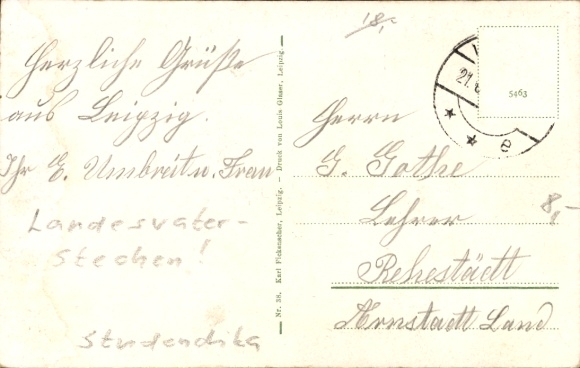 Herzliche Grüße
aus Leipzig.
Ihr E. Umbreit u. Frau
Landesvater-
Stechen!
Studentika
Nr. 38. Karl Fickenscher, Leipzig. — Druck von Louis Glaser, Leipzig
18,-
5463
21.
e
Herrn
G. Gothe
Lehrer
8,-
Rehestädt
Arnstadt Land